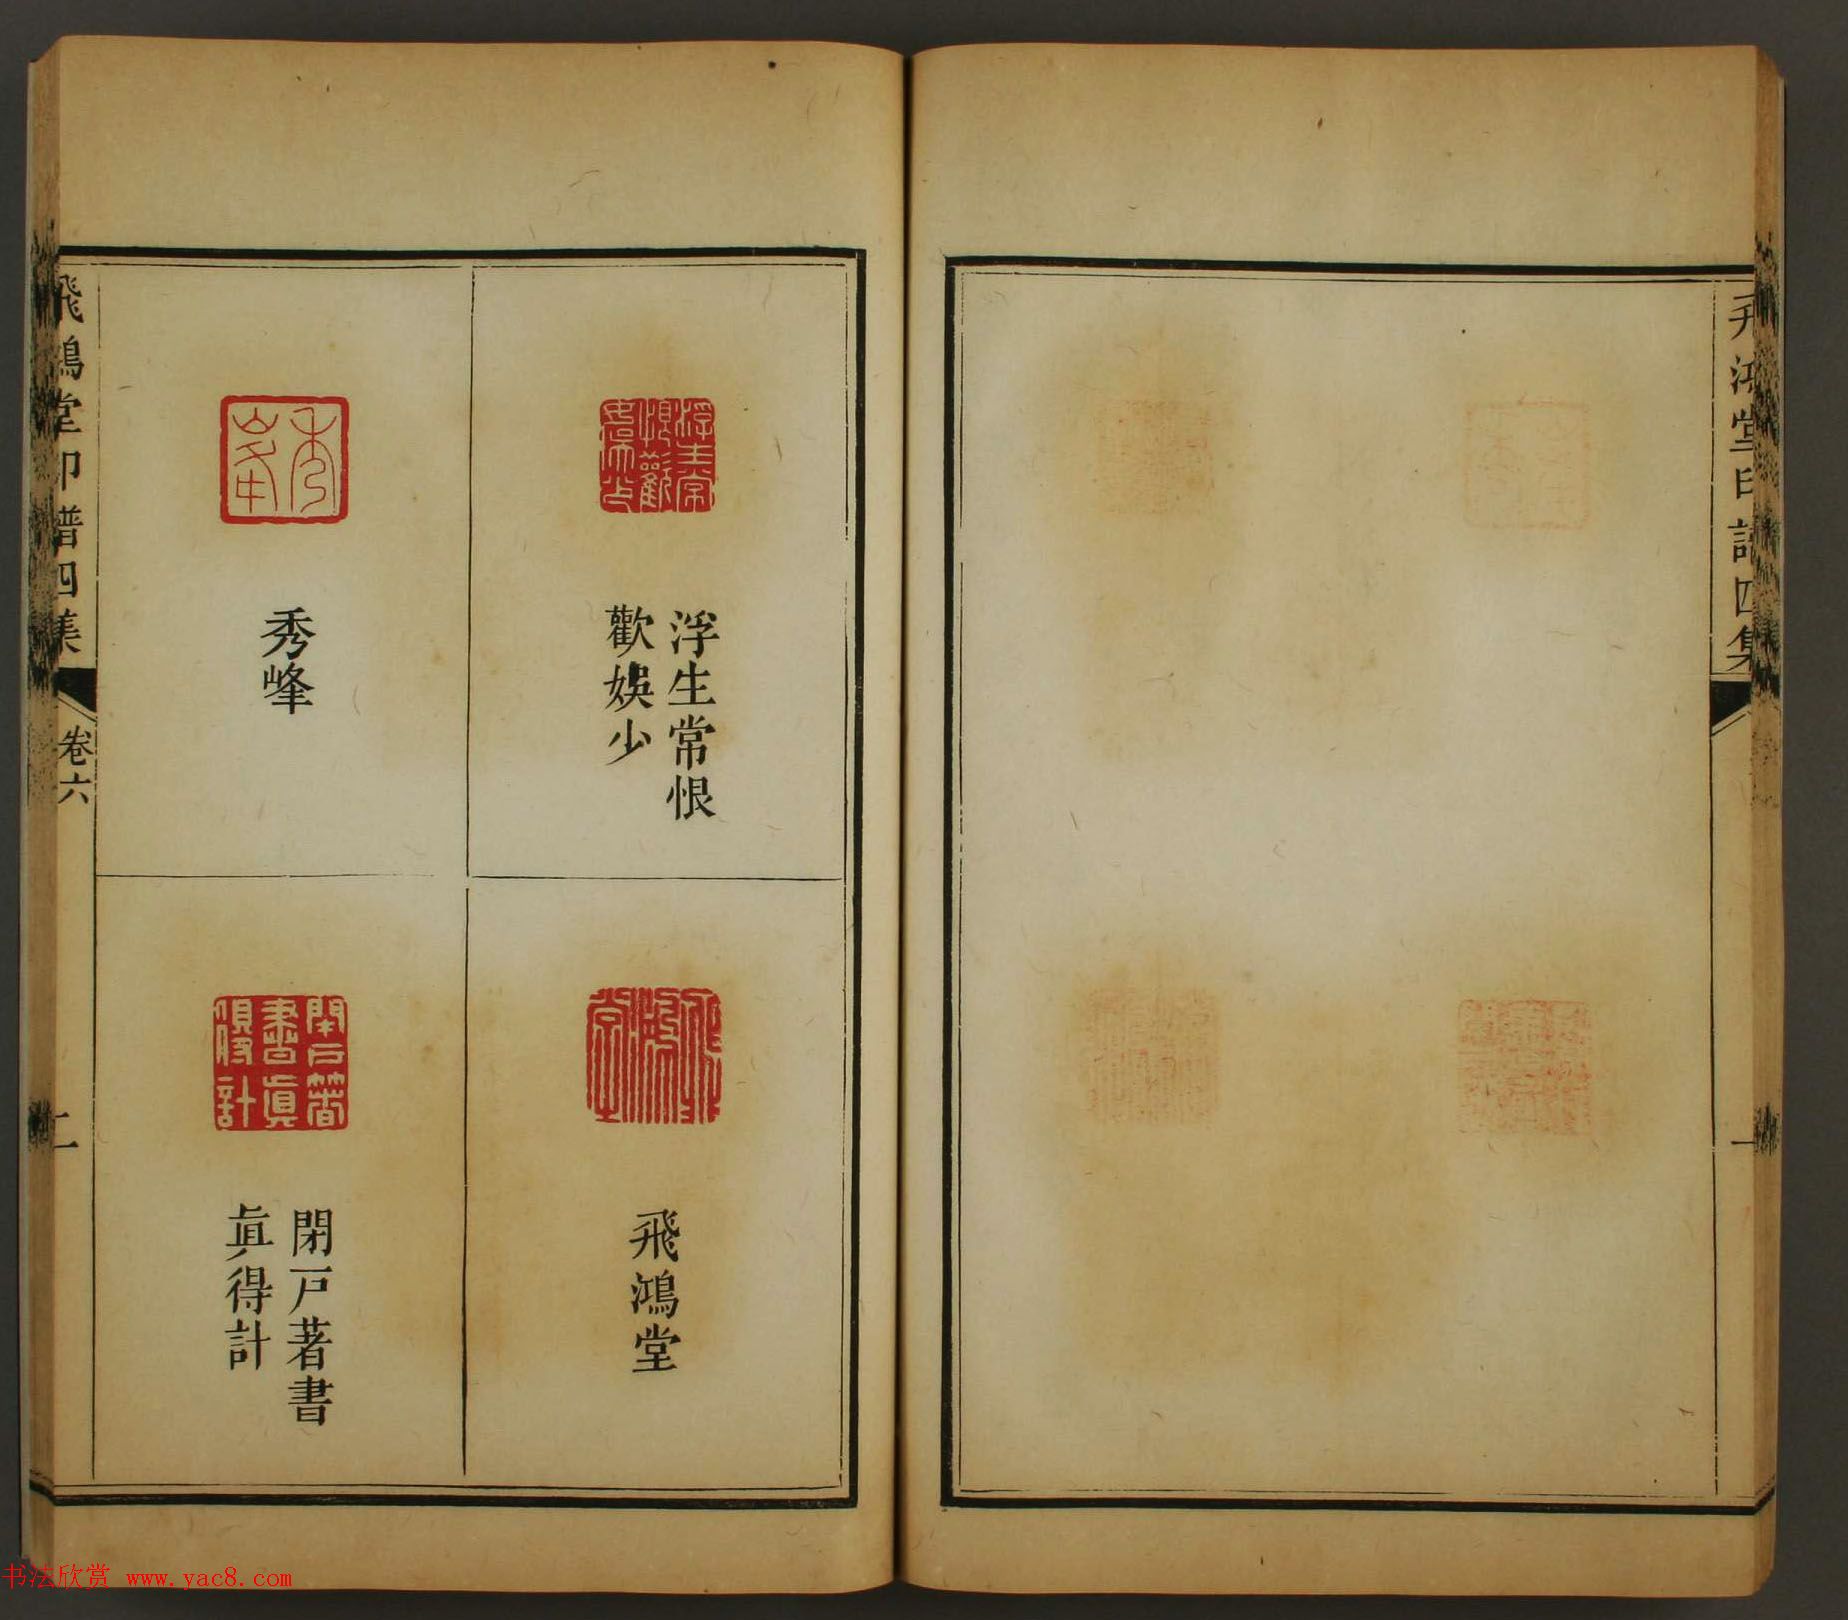 飛鴻堂印譜四集
浮生常恨
歡娛少
秀峰
飛鴻堂
閉戸著書
眞得計
飛鴻堂印譜四集
卷六
二
书法欣赏 www.yac8.com